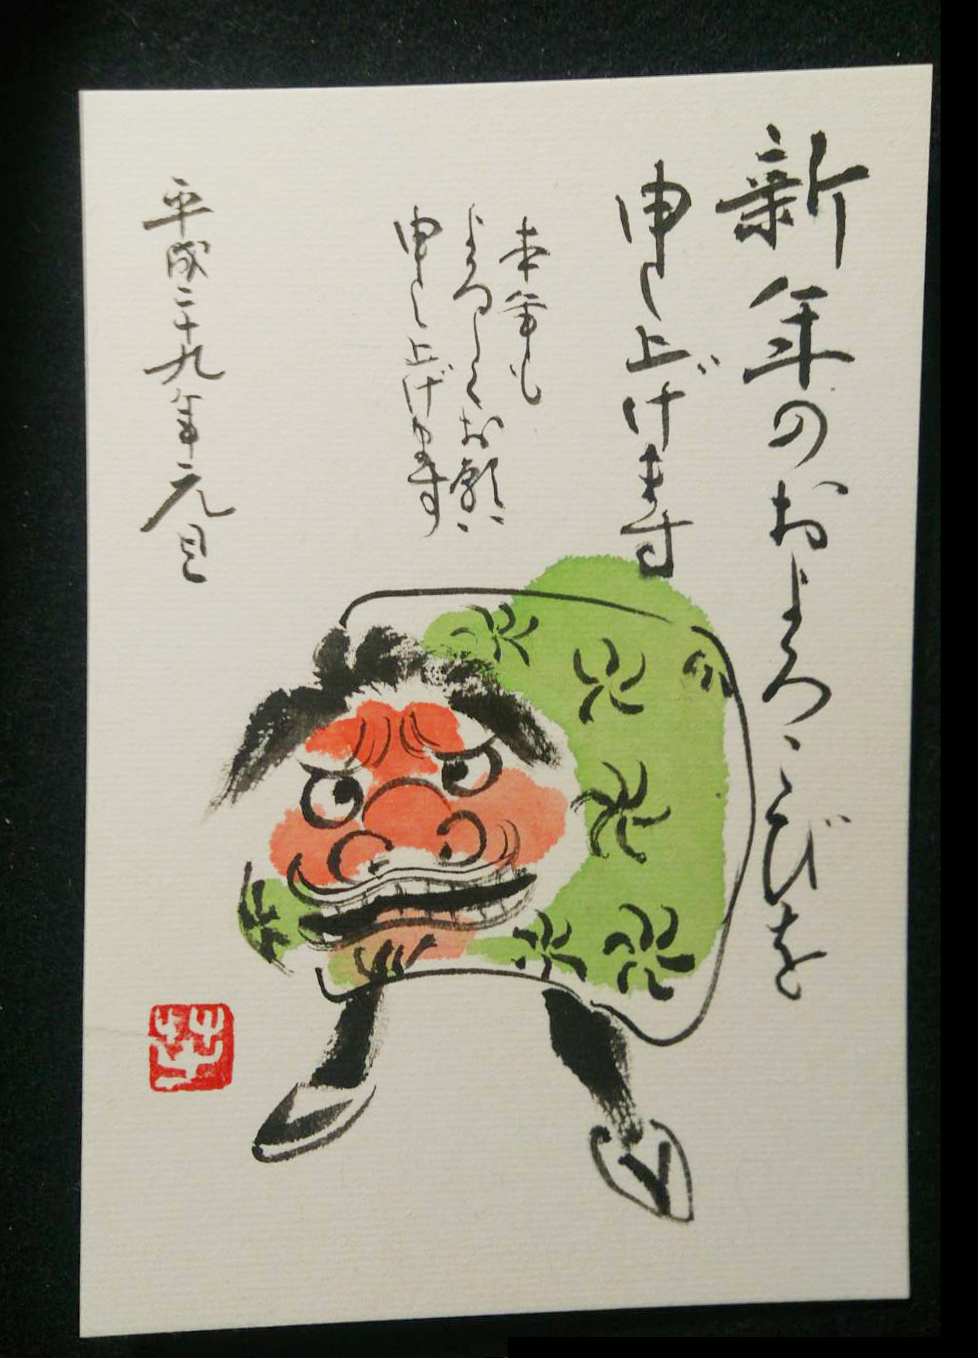 新年のおよろこびを
申し上げます
本年も
よろしくお願い
申し上げます
平成二十九年元旦